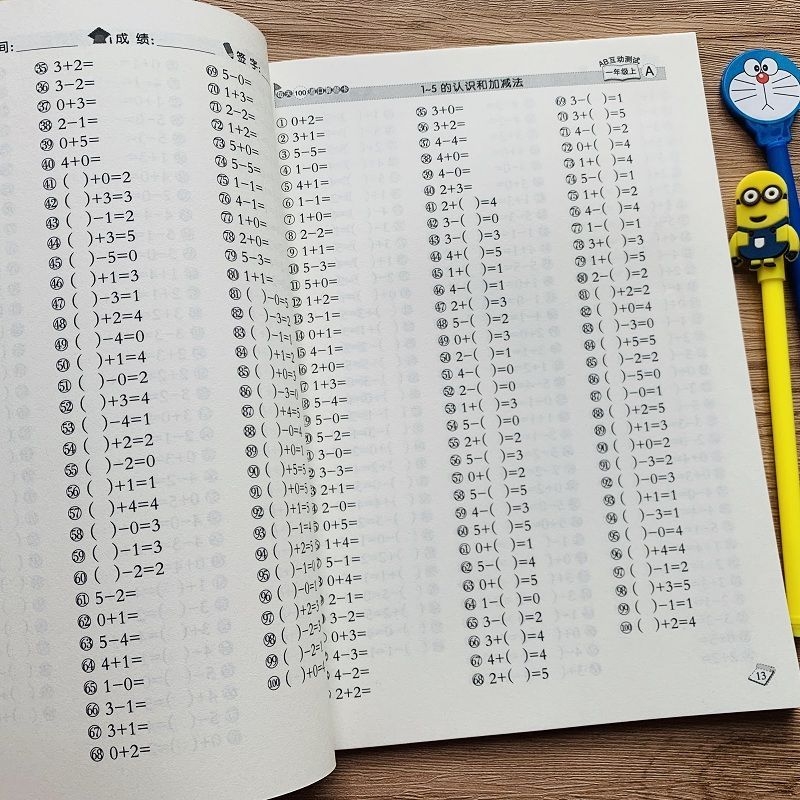 间:
成 绩:
签 字:
㉟ 3+2=
㊱ 3−2=
㊲ 0+3=
㊳ 2−1=
㊴ 0+5=
㊵ 4+0=
㊶ (  )+0=2
㊷ (  )+3=3
㊸ (  )−1=2
㊹ (  )+3=5
㊺ (  )−5=0
㊻ (  )+1=3
㊼ (  )−3=1
㊽ (  )+2=4
㊾ (  )−4=0
㊿ (  )+1=4
51 (  )−0=2
52 (  )+3=4
53 (  )−4=1
54 (  )+2=2
55 (  )−2=0
56 (  )+1=1
57 (  )+4=4
58 (  )−0=3
59 (  )−1=3
60 (  )−2=2
61 5−2=
62 0+1=
63 5−4=
64 4+1=
65 1−0=
66 3−1=
67 3+1=
68 0+2=
69 5−0=
70 1+3=
71 2−2=
72 1+2=
73 5+0=
74 5−5=
75 1−1=
76 4−1=
77 1+0=
78 2+0=
79 5−3=
80 1+1=
81 (  )−0=5
82 (  )−3=2
83 (  )−1=1
84 (  )+1=2
85 (  )+0=3
86 (  )−3=0
87 (  )+4=5
88 (  )−0=4
89 (  )+0=1
90 (  )+5=5
91 (  )+0=5
92 (  )+1=5
93 (  )−1=4
94 (  )+2=5
95 (  )−1=0
96 (  )−0=1
97 (  )+2=3
98 (  )−2=3
99 (  )−2=1
100 (  )+0=4
每天100道口算题卡
1~5 的认识和加减法
AB互动测试
一年级上 A
① 0+2=
② 3+1=
③ 5−5=
④ 1−0=
⑤ 4+1=
⑥ 1−1=
⑦ 1+0=
⑧ 2−2=
⑨ 1+1=
⑩ 5−3=
⑪ 5+0=
⑫ 1+2=
⑬ 3−1=
⑭ 0+1=
⑮ 4−1=
⑯ 2+0=
⑰ 1+3=
⑱ 5−4=
5−0=
5−2=
3−0=
3−3=
2+1=
2−0=
0+5=
1+4=
5−1=
0+4=
2−1=
3−2=
0+3=
4−3=
4−2=
2+2=
㉟ 3+0=
㊱ 3+2=
㊲ 4−4=
㊳ 4+0=
㊴ 4−0=
㊵ 2+3=
㊶ 2+(  )=4
㊷ 3−(  )=0
㊸ 3−(  )=3
㊹ 4+(  )=5
㊺ 1+(  )=1
㊻ 4−(  )=1
㊼ 2+(  )=3
㊽ 5−(  )=2
㊾ 0+(  )=3
㊿ 2−(  )=1
51 4−(  )=0
52 2−(  )=0
53 1+(  )=3
54 5−(  )=0
55 2+(  )=2
56 5−(  )=3
57 0+(  )=2
58 5−(  )=5
59 4−(  )=3
60 5+(  )=5
61 0+(  )=1
62 5−(  )=4
63 0+(  )=5
64 1−(  )=0
65 3−(  )=2
66 3+(  )=4
67 4+(  )=4
68 2+(  )=5
69 3−(  )=1
70 3+(  )=5
71 4−(  )=2
72 0+(  )=4
73 1+(  )=4
74 5−(  )=1
75 1+(  )=2
76 4−(  )=4
77 1−(  )=1
78 3+(  )=3
79 1+(  )=5
80 2−(  )=2
81 (  )+2=2
82 (  )+0=4
83 (  )−3=0
84 (  )+5=5
85 (  )−2=2
86 (  )−5=0
87 (  )−0=1
88 (  )+2=5
89 (  )+1=3
90 (  )+0=2
91 (  )−3=2
92 (  )−0=3
93 (  )+1=1
94 (  )−3=1
95 (  )−0=4
96 (  )+4=4
97 (  )−1=2
98 (  )+3=5
99 (  )−1=1
100 (  )+2=4
13